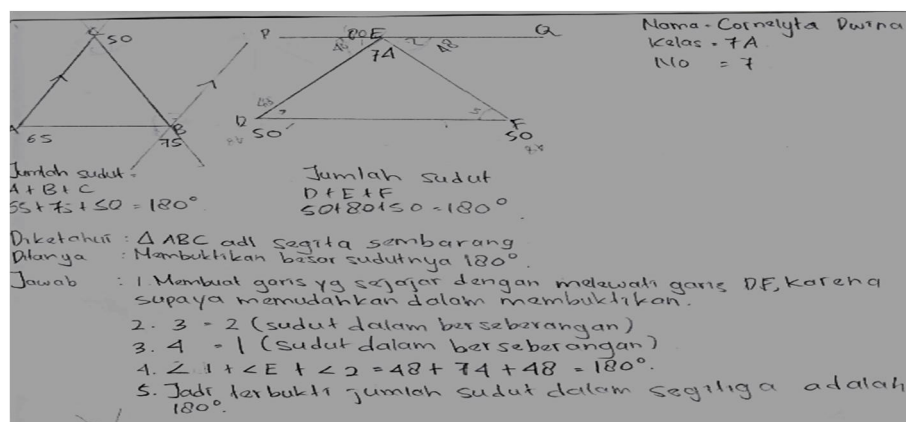 Nama - Cornelyta Dwina
Kelas = 7A
No = 7
C 50
A 65
B 75
P E Q
74 2 48
D 50
F 50
Jumlah sudut =
A + B + C
55 + 75 + 50 = 180°
Jumlah sudut
D + E + F
50 + 80 + 50 = 180°
Diketahui : Δ ABC adl segita sembarang
Ditanya : Membuktikan besar sudutnya 180°.
Jawab : 1. Membuat garis yg sejajar dengan melewati garis DF, karena
supaya memudahkan dalam membuktikan.
2. 3 = 2 (sudut dalam berseberangan)
3. 4 = 1 (sudut dalam berseberangan)
4. ∠ 1 + ∠E + ∠ 2 = 48 + 74 + 48 = 180°.
5. Jadi terbukti jumlah sudut dalam segitiga adalah
180°.